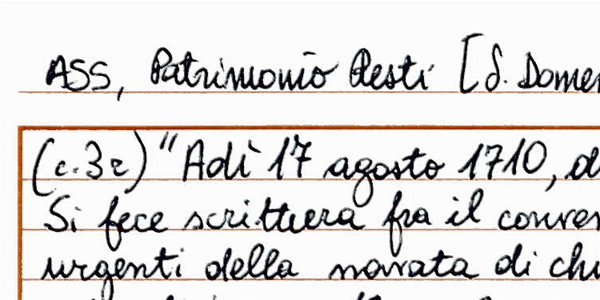 ASS, Patrimonio Resti [S. Domen
(c.3r) "Adì 17 agosto 1710, d
Si fece scrittura fra il conven
urgenti della novata di chi